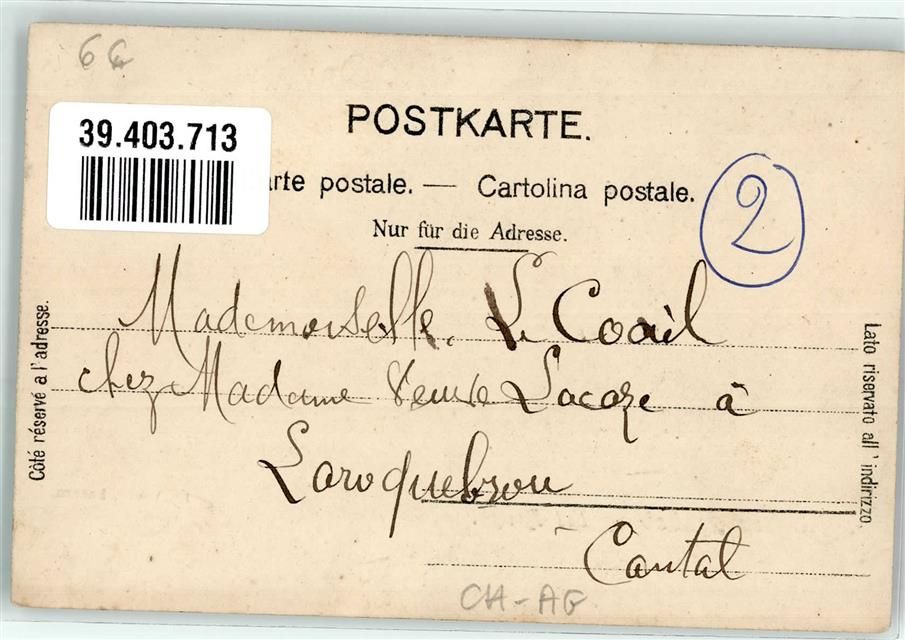 6G
39.403.713
POSTKARTE.
arte postale. — Cartolina postale.
2
Nur für die Adresse.
Côté réservé a l'adresse.
Lato riservato all' indirizzo
Mademoiselle. Le Coail
chez Madame Veuve Lacaze à
Laroquebrou
Cantal
CH-AG